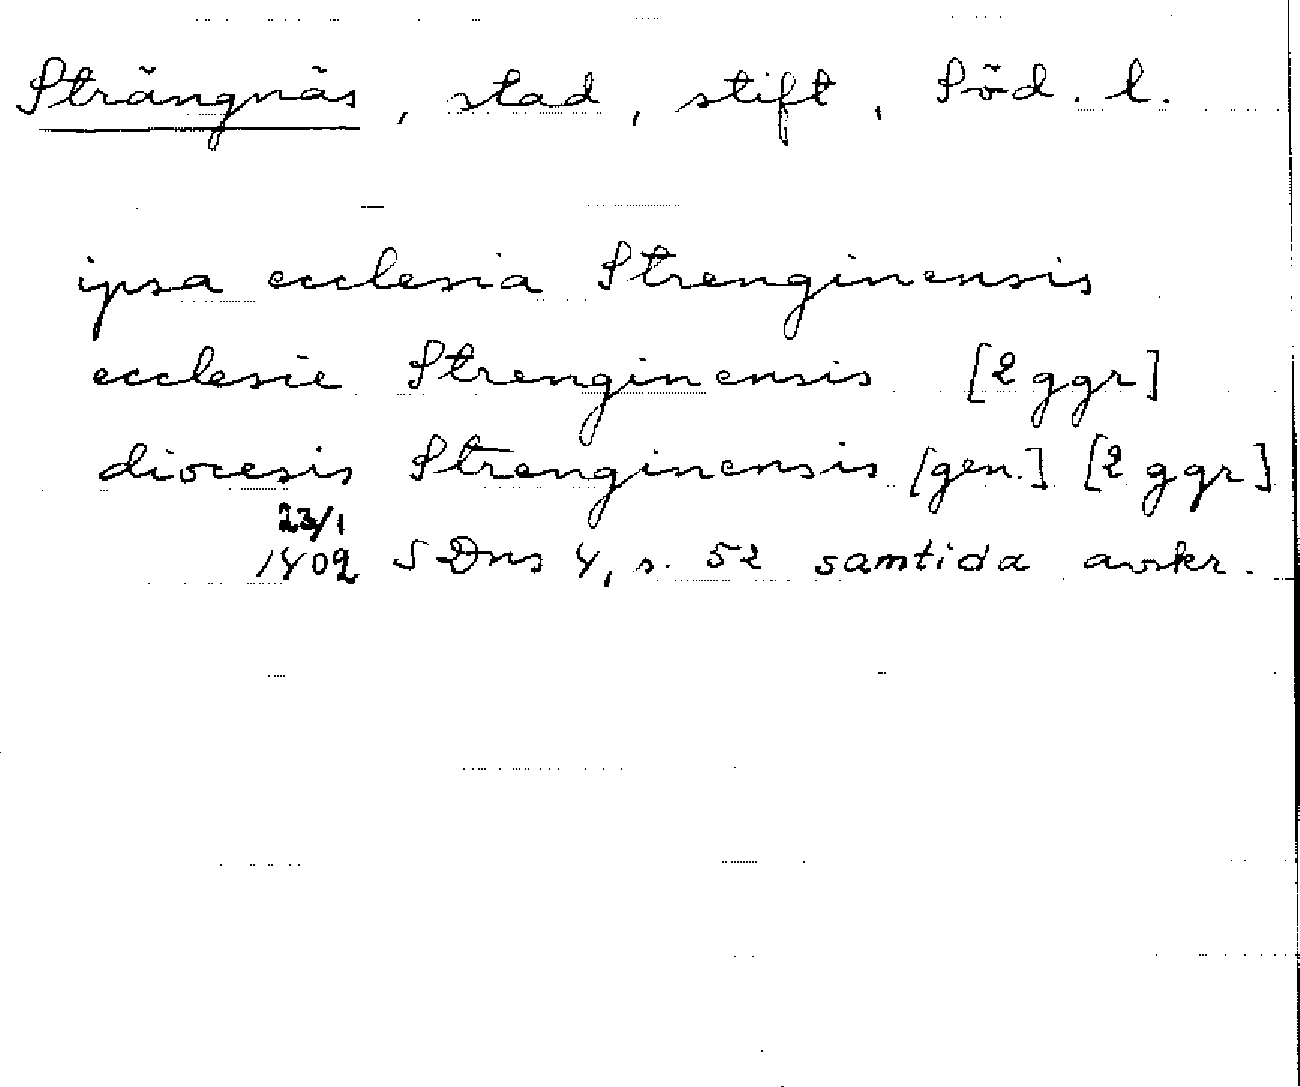 Strängnäs, stad, stift, Söd. l.
ipsa ecclesia Strenginensis
ecclesie Strenginensis [2 ggr]
diocesis Strenginensis [gen.] [2 ggr]
23/1
1402 SDns 4, s. 52 samtida avskr.